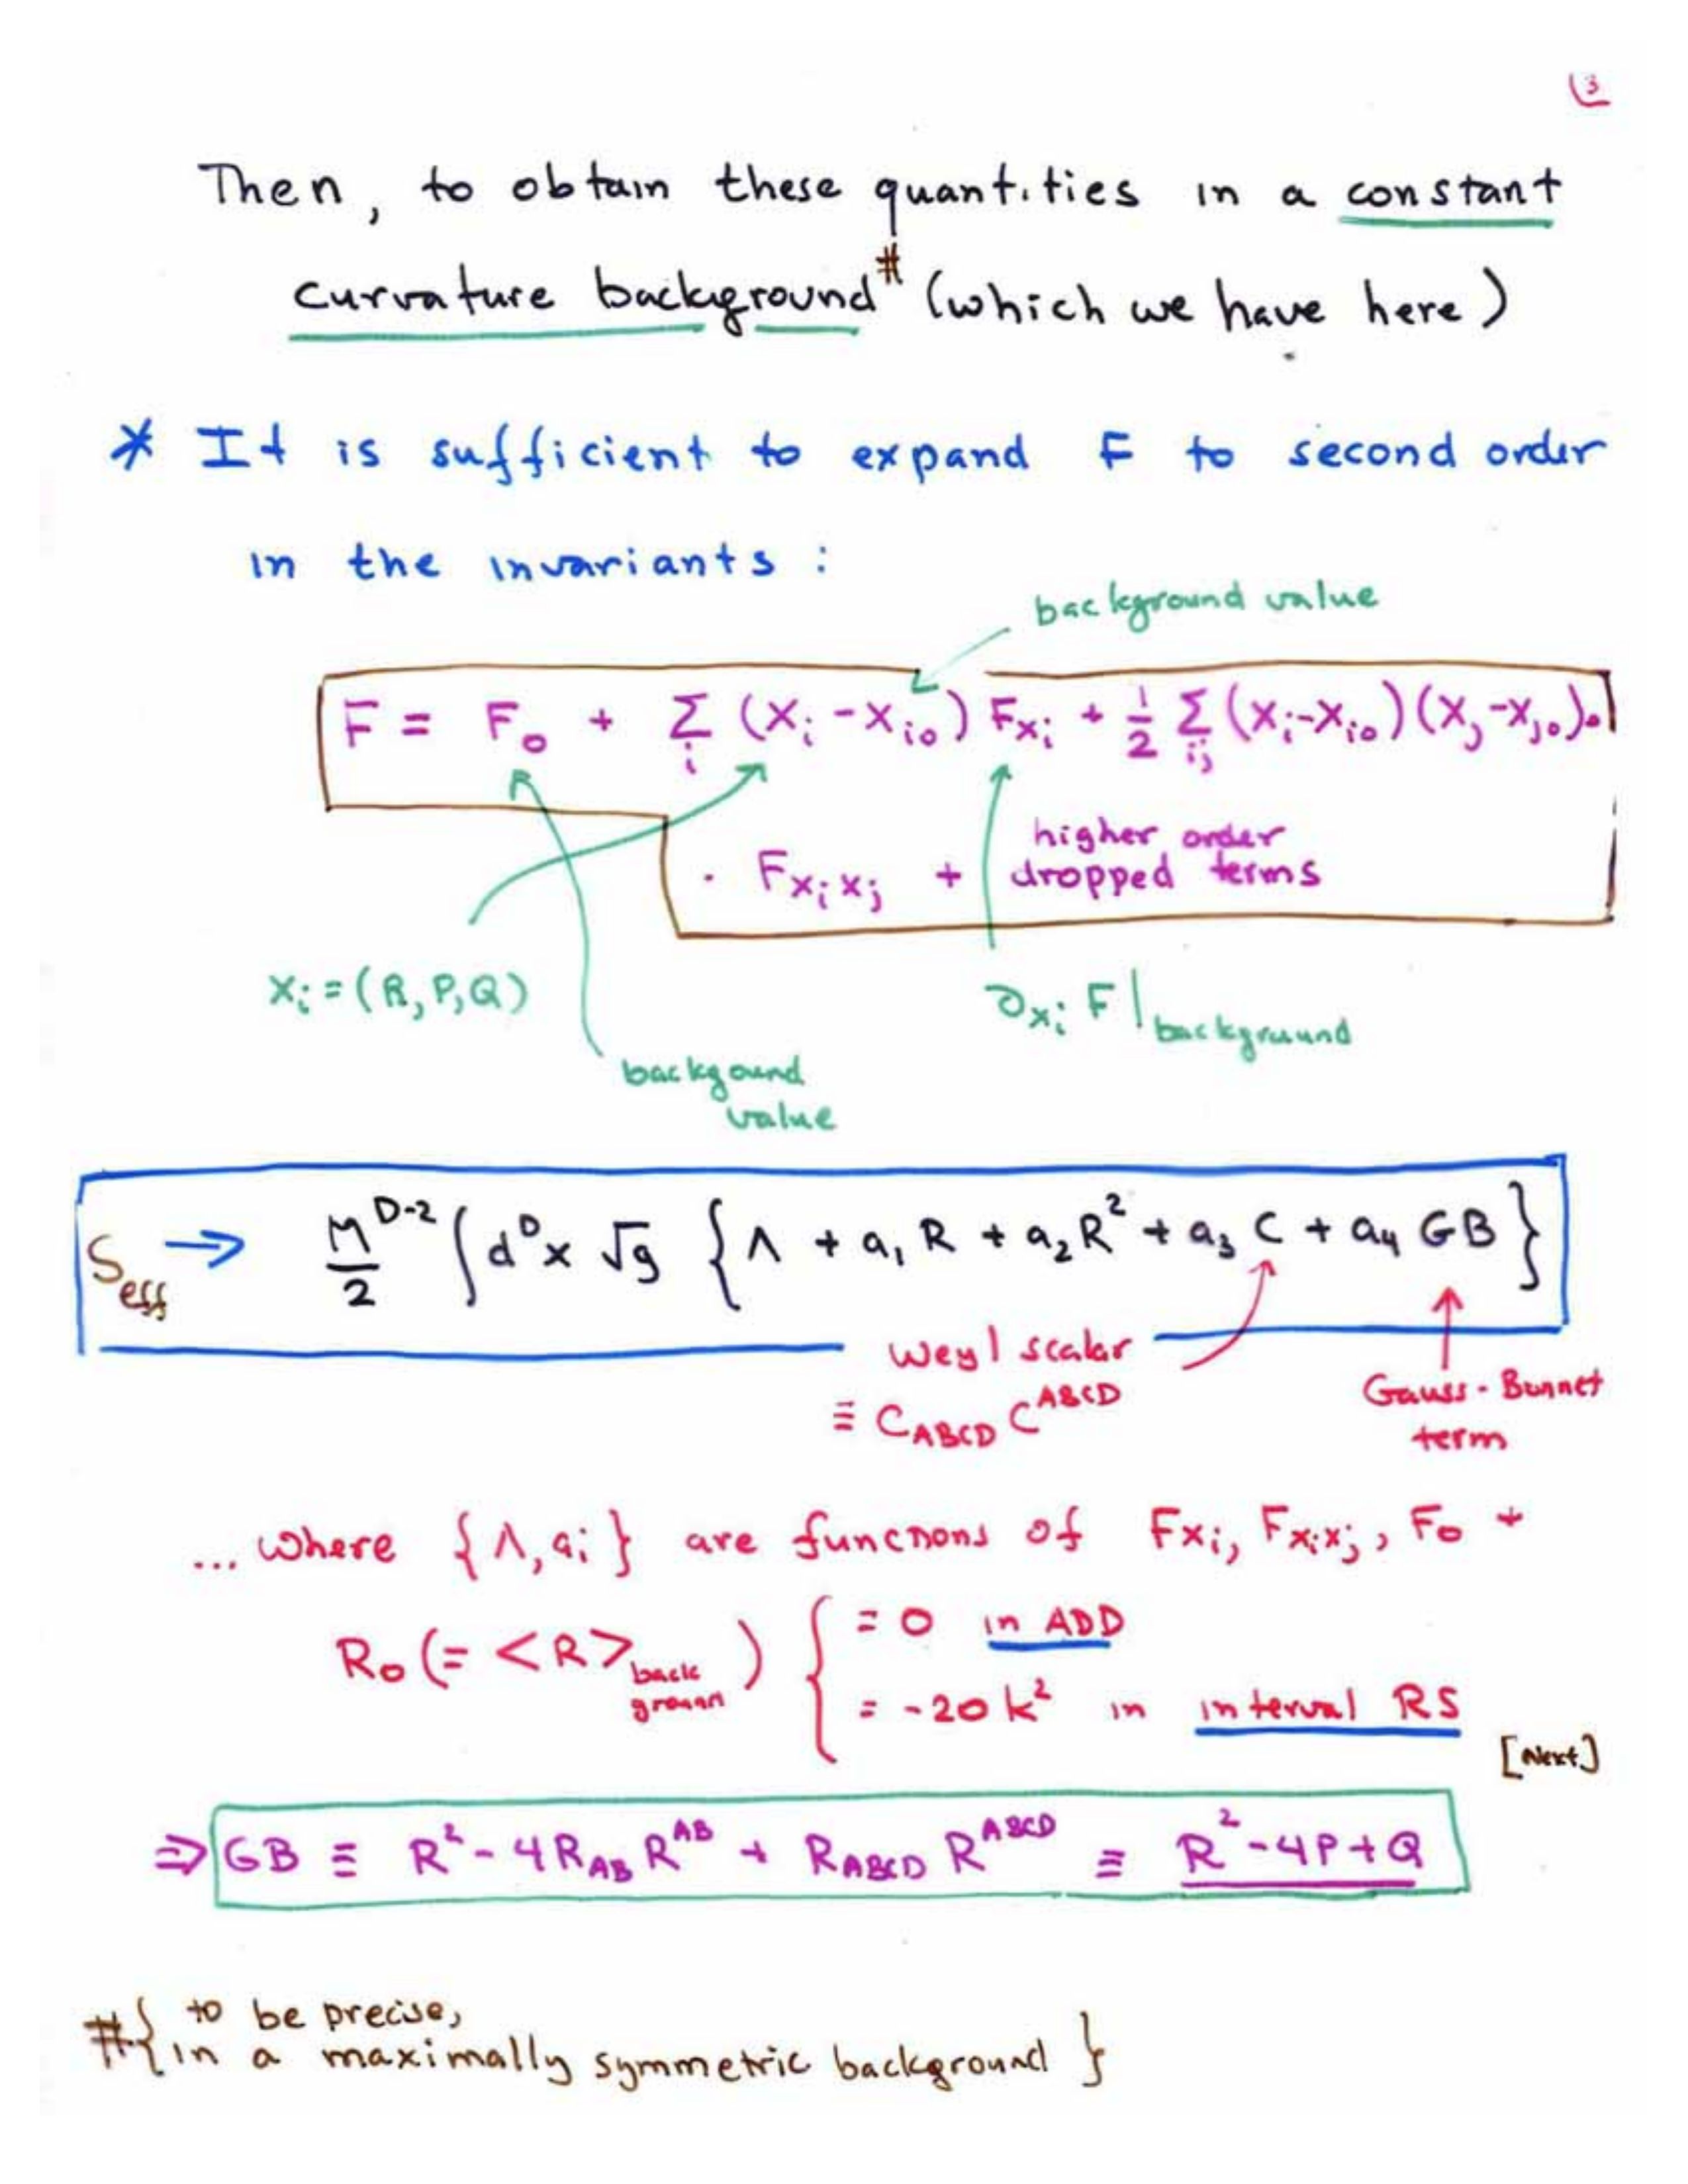 13
Then, to obtain these quantities in a constant
curvature background# (which we have here)
* It is sufficient to expand F to second order
in the invariants :
background value
F = F₀ + Σᵢ (Xᵢ - Xᵢ₀) F_Xᵢ + 1/2 Σᵢⱼ (Xᵢ-Xᵢ₀)(Xⱼ-Xⱼ₀)·
· F_XᵢXⱼ + higher order dropped terms
Xᵢ = (R, P, Q)
∂_Xᵢ F |background
backgound
value
S_eff → M^(D-2)/2 ∫ d^D x √g { Λ + a₁ R + a₂ R² + a₃ C + a₄ GB }
Weyl scalar
≡ C_ABCD C^ABCD
Gauss-Bonnet
term
... where {Λ, aᵢ} are functions of F_Xᵢ, F_XᵢXⱼ, F₀ +
R₀ (= <R>back ground) { = 0 in ADD
= -20 k² in interval RS
[Next]
⇒ GB ≡ R² - 4 R_AB R^AB + R_ABCD R^ABCD ≡ R² - 4P + Q
# { to be precise,
in a maximally symmetric background }